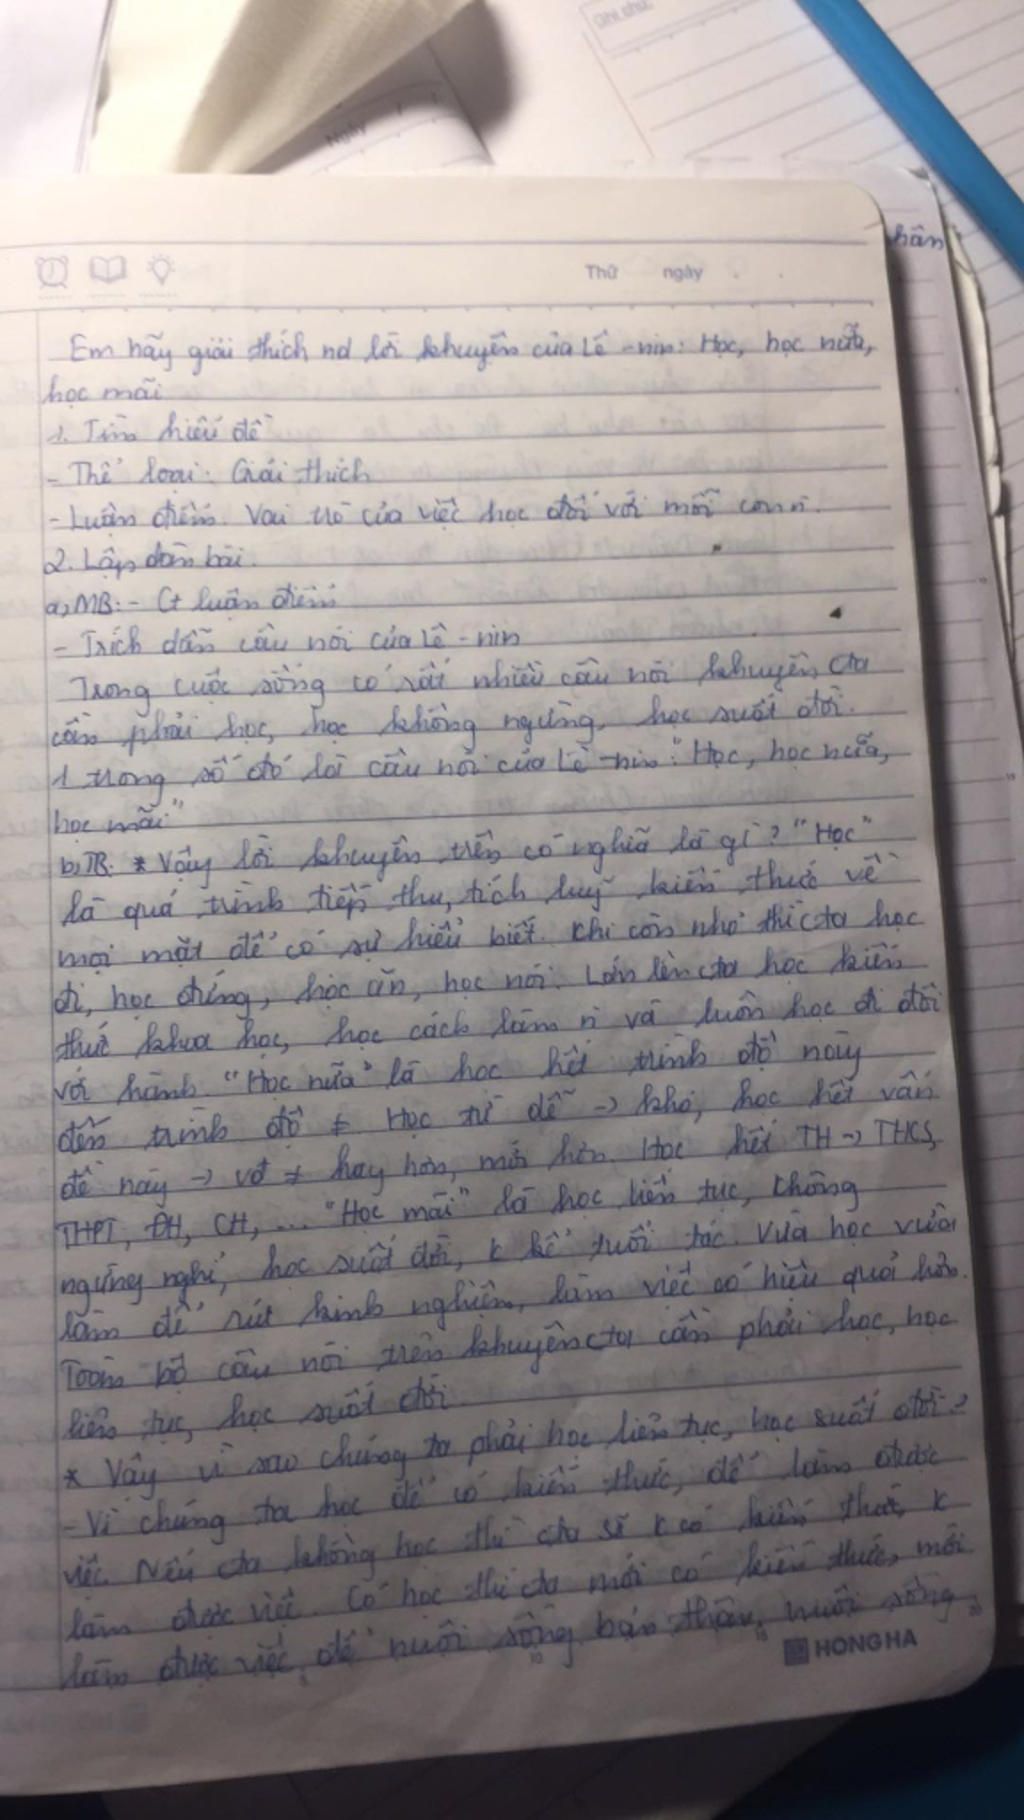 Ghi chú:
Ngày
hân
Thứ ngày
Em hãy giải thích nd lời khuyên của Lê-nin: Học, học nữa,
học mãi
1. Tìm hiểu đề
- Thể loại: Giải thích
- Luận điểm: Vai trò của việc học đối với mỗi con n.
2. Lập dàn bài.
a, MB: - Gt luận điểm
- Trích dẫn câu nói của Lê-nin
Trong cuộc sống có rất nhiều câu nói khuyên cta
cần phải học, học không ngừng, học suốt đời.
1 trong số đó là câu nói của Lê-nin: "Học, học nữa,
học mãi"
b, TB: * Vậy lời khuyên trên có nghĩa là gì? "Học"
là quá trình tiếp thu, tích luỹ kiến thức về
mọi mặt để có sự hiểu biết. Khi còn nhỏ thì cta học
đi, học đứng, học ăn, học nói. Lớn lên cta học kiến
thức khoa học, học cách làm n và luôn học đi đôi
với hành. "Học nữa" là học hết trình độ này
đến trình độ ≠. Học từ dễ → khó, học hết vấn
đề này → vđ ≠ hay hơn, mới hơn. Học hết TH → THCS,
THPT, ĐH, CH, ... "Học mãi" là học liên tục, không
ngừng nghỉ, học suốt đời, k kể tuổi tác. Vừa học vừa
làm để rút kinh nghiệm, làm việc có hiệu quả hơn.
Toàn bộ câu nói trên khuyên cta cần phải học, học
liên tục, học suốt đời.
* Vậy vì sao chúng ta phải học liên tục, học suốt đời?
- Vì chúng ta học để có kiến thức, để làm được
việc. Nếu cta không học thì cta sẽ k có kiến thức, k
làm được việc. Có học thì cta mới có kiến thức, mới
làm được việc để nuôi sống bản thân, nuôi sống
HONG HA